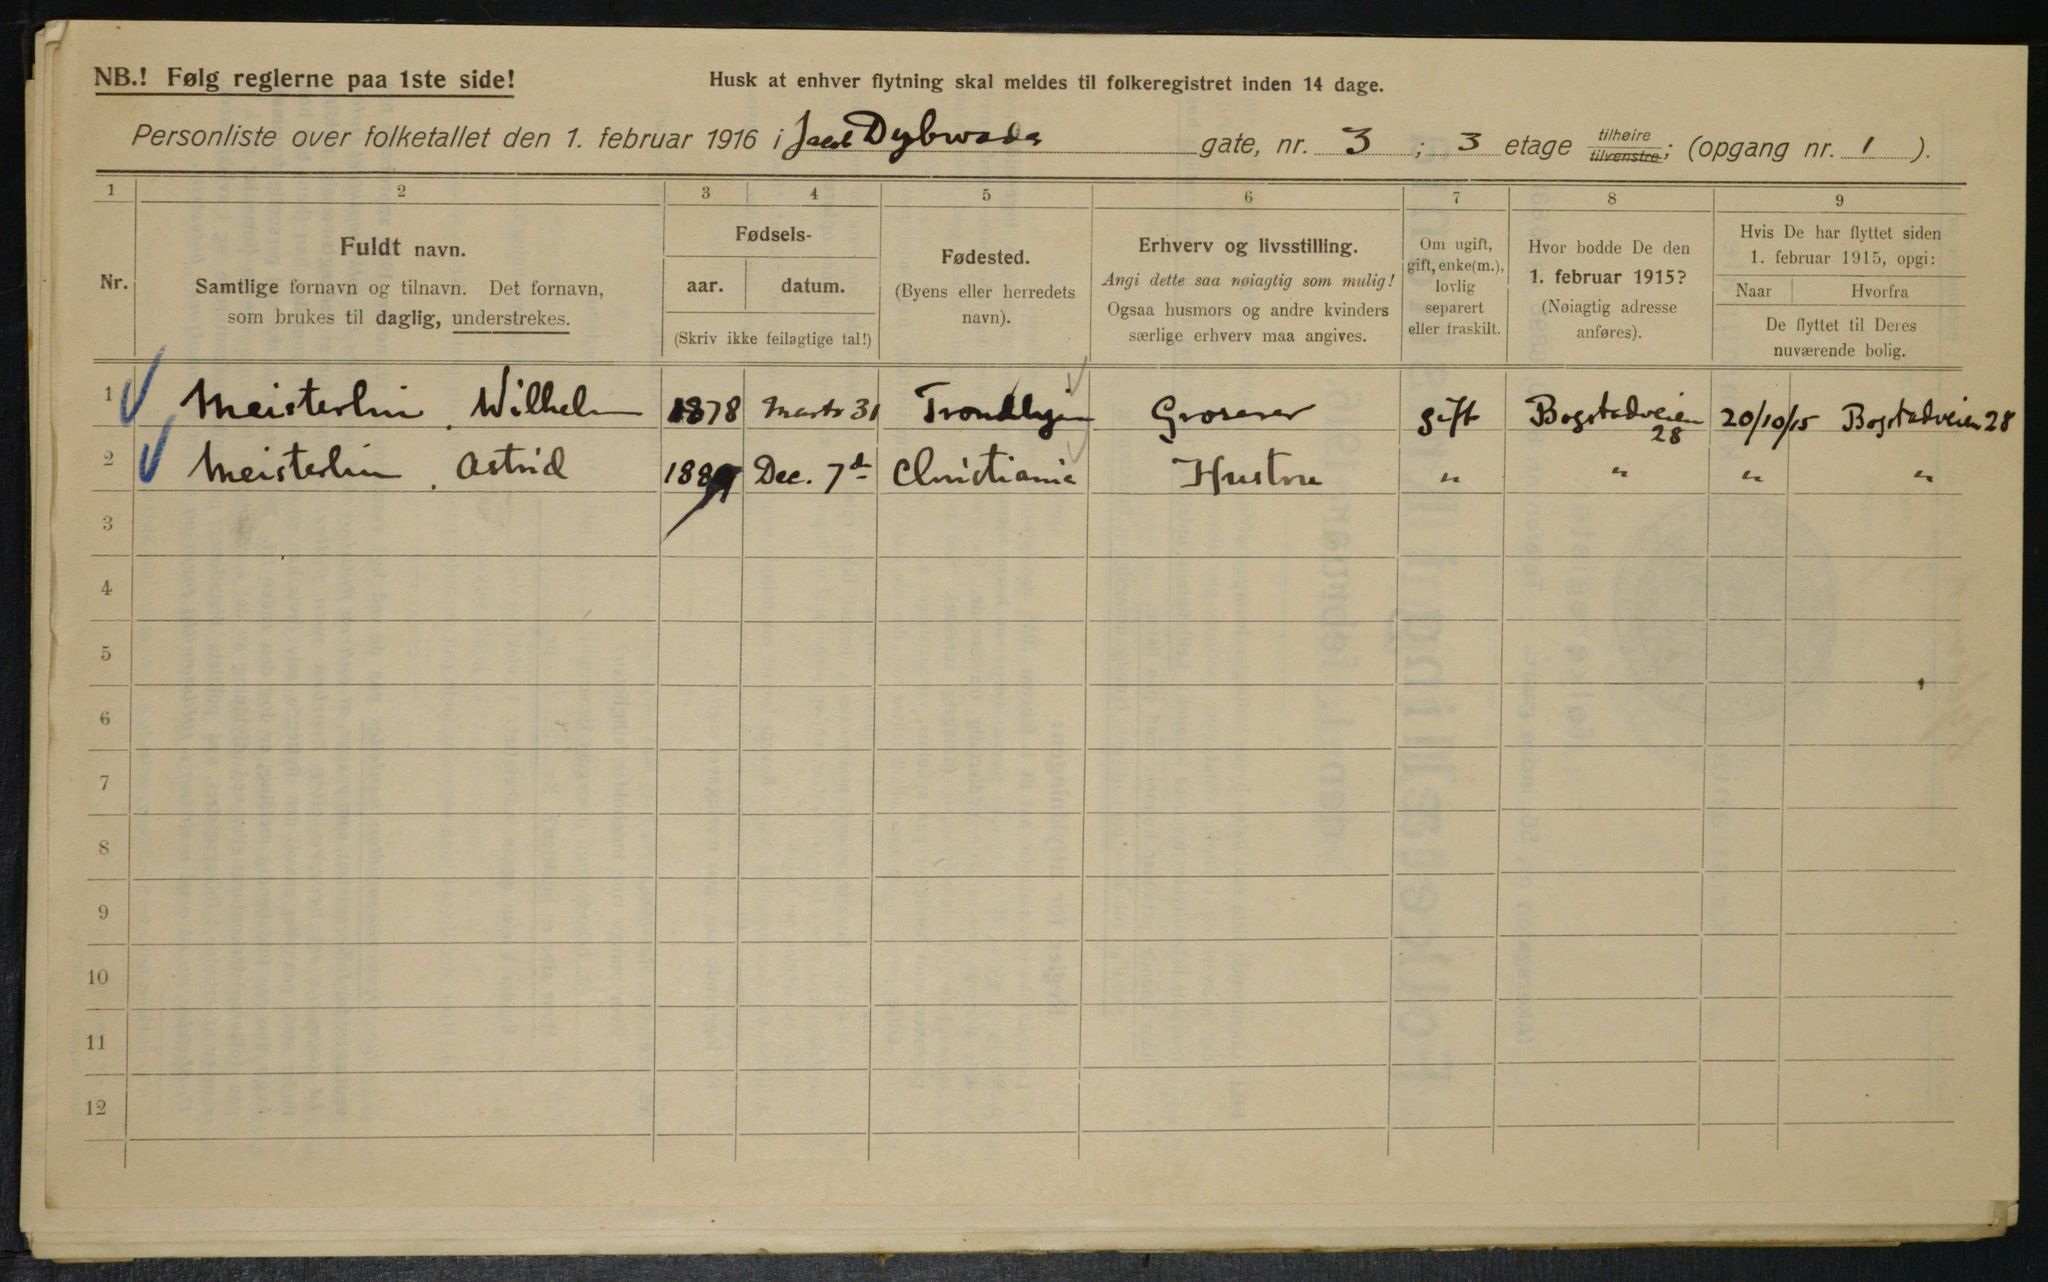 NB.! Følg reglerne paa 1ste side!
Husk at enhver flytning skal meldes til folkeregistret inden 14 dage.
Personliste over folketallet den 1. februar 1916 i Dybwads gate, nr. 3 ; 3 etage tilhøire tilvenstre; (opgang nr. 1 ).
1 2 3 4 5 6 7 8 9
Nr.
Fuldt navn.
Samtlige fornavn og tilnavn. Det fornavn,
som brukes til daglig, understrekes.
Fødsels-
aar. datum.
(Skriv ikke feilagtige tal!)
Fødested.
(Byens eller herredets
navn).
Erhverv og livsstilling.
Angi dette saa nøiagtig som mulig!
Ogsaa husmors og andre kvinders
særlige erhverv maa angives.
Om ugift,
gift, enke(m.),
lovlig
separert
eller fraskilt.
Hvor bodde De den
1. februar 1915?
(Nøiagtig adresse
anføres).
Hvis De har flyttet siden
1. februar 1915, opgi:
Naar Hvorfra
De flyttet til Deres
nuværende bolig.
1 Meisterlin, Wilhelm 1878 Marts 31 Trondhjem Groserer gift Bogstadveien 28 20/10/15 Bogstadveien 28
2 Meisterlin, Astrid Dec. 7d Christiania Hustru " " " "
3
4
5
6
7
8
9
10
11
12